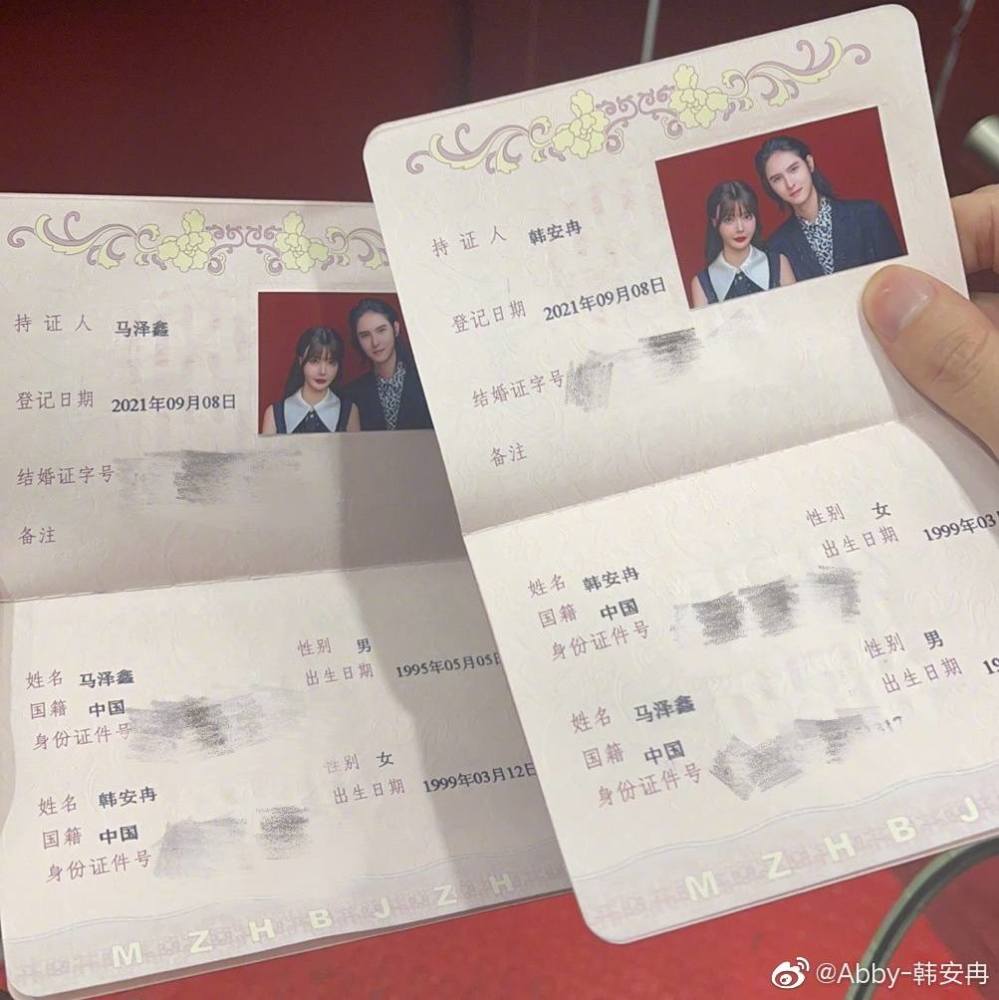 持证人 马泽鑫
登记日期 2021年09月08日
结婚证字号
备注
性别 男
姓名 马泽鑫
出生日期 1995年05月05日
国籍 中国
身份证件号
性别 女
姓名 韩安冉
出生日期 1999年03月12日
国籍 中国
身份证件号
M Z H B J Z H
持证人 韩安冉
登记日期 2021年09月08日
结婚证字号
备注
性别 女
姓名 韩安冉
出生日期 1999年03
国籍 中国
身份证件号
性别 男
姓名 马泽鑫
出生日期 19
国籍 中国
身份证件号
M Z H B J
@Abby-韩安冉